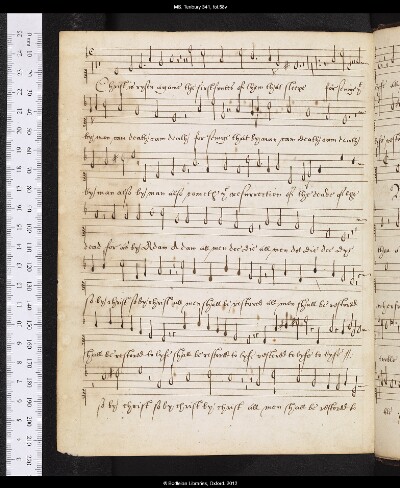 MS. Tenbury 341, fol.58v
Christ is rysen agayne the first frutes of them that sleepe for seinge yt
by man cam death cam death for seinge that by man cam death cam death
by man also by man also cometh ye resurrection of the deade of the
dead for as by Adam Adam all men doe die all men doe die doe dye
so by christ so by christ all men shall be restored all men shall be restored
shall be restored to lyfe shall be restored to lyfe restored to lyfe to lyfe
so by christ so by christ by christ all men shall be restored to
© Bodleian Libraries, Oxford, 2012